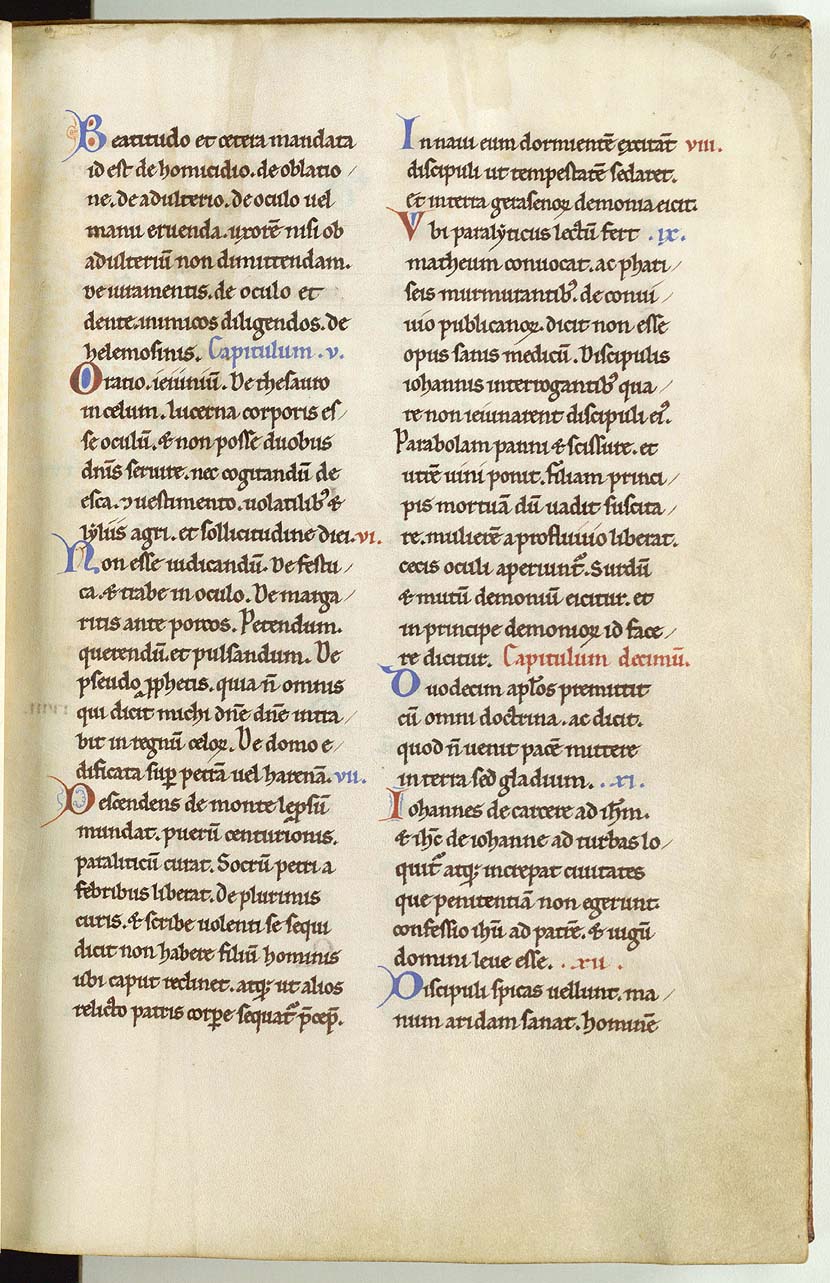 6
Beatitudo et cetera mandata
id est de homicidio. de oblatio
ne. de adulterio. de oculo uel
manu eruenda. uxorē nisi ob
adulteriū non dimittendam.
De iuramentis. de oculo et
dente. inimicos diligendos. de
helemosinis. Capitulum .v.
Oratio. ieiuniū. De thesauro
in celum. lucerna corporis es
se oculū. & non posse duobus
dnīs seruire. nec cogitandū de
esca. ⁊ uestimento. uolatilib; &
lyliis agri. et sollicitudine diei. vi.
Non esse iudicandū. De festu
ca. & trabe in oculo. De marga
ritis ante porcos. Petendum.
querendū. et pulsandum. De
pseudo ꝓphetis. quia n̄ omnis
qui dicit michi dn̄e dn̄e intra
bit in regnū celoꝝ. De domo e
dificata suꝑ petrā uel harenā. vii.
Descendens de monte lepsū
mundat. puerū centurionis.
paraliticū curat. Socrū petri a
febribus liberat. De plurimis
curis. & scribe uolenti se sequi
dicit non habere filiū hominis
ubi caput reclinet. atq; ut alios
relicto patris corꝑe sequat᷑ p̄cep̄.
In naui eum dormientē excitāt viii.
discipuli ut tempestatē sedaret.
et in terra gerasenoꝝ demonia eicit.
Vbi paralyticus lectū fert .ix.
matheum conuocat. ac phari
seis murmurantib;. de conui
uio publicanoꝝ. dicit non esse
opus sanis medicū. Discipulis
iohannis interrogantib; qua
re non ieiunarent discipuli ei᷒.
Parabolam panni & scissure. et
utrē uini ponit. filiam princi
pis mortuā dū uadit suscita
re. mulierē a profluuio liberat.
cecis oculi aperiunt᷑. Surdū
& mutū demoniū eicitur. et
in principe demonioꝝ id face
re dicitur. Capitulum decimū.
Duodecim apl̄os premittit
cū omni doctrina. ac dicit.
quod n̄ uenit pacē mittere
in terra sed gladium. .xi.
Iohannes de carcere ad ih̄m.
& ih̄c de iohanne ad turbas lo
quit᷑ atq; increpat ciuitates
que penitentiā non egerunt.
confessio ih̄u ad patrē. & iugū
domini leue esse. .xii.
Discipuli spicas uellunt. ma
num aridam sanat. hominē